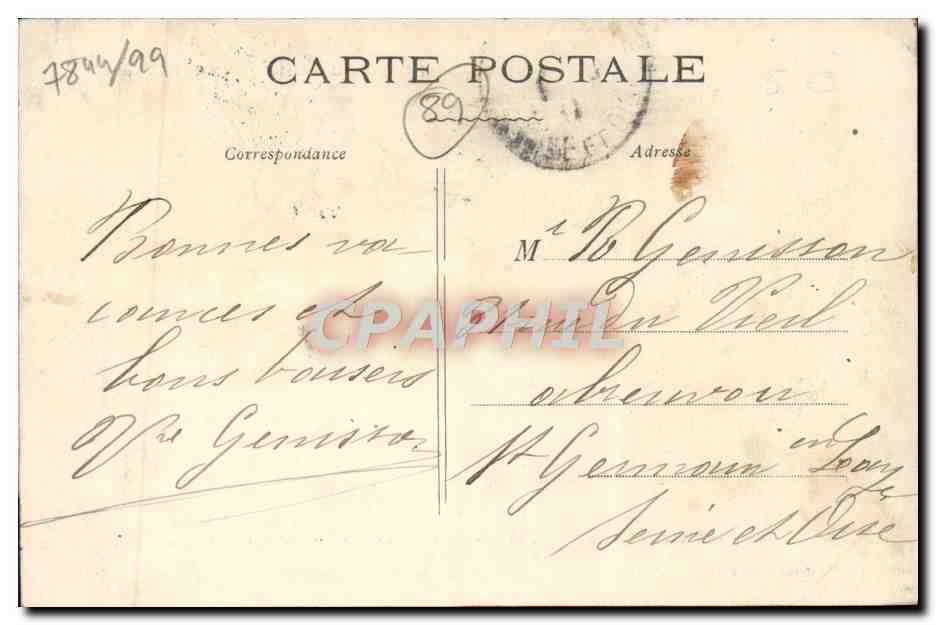 7844/99
CARTE POSTALE
89
SEINE ET O
Correspondance
Adresse
Bonnes va-
cances et
bons baisers
Vve Genisson
M r R Genisson
rue du Vieil
abreuvoir
St Germain en Laye
Seine et Oise
CPAPHIL